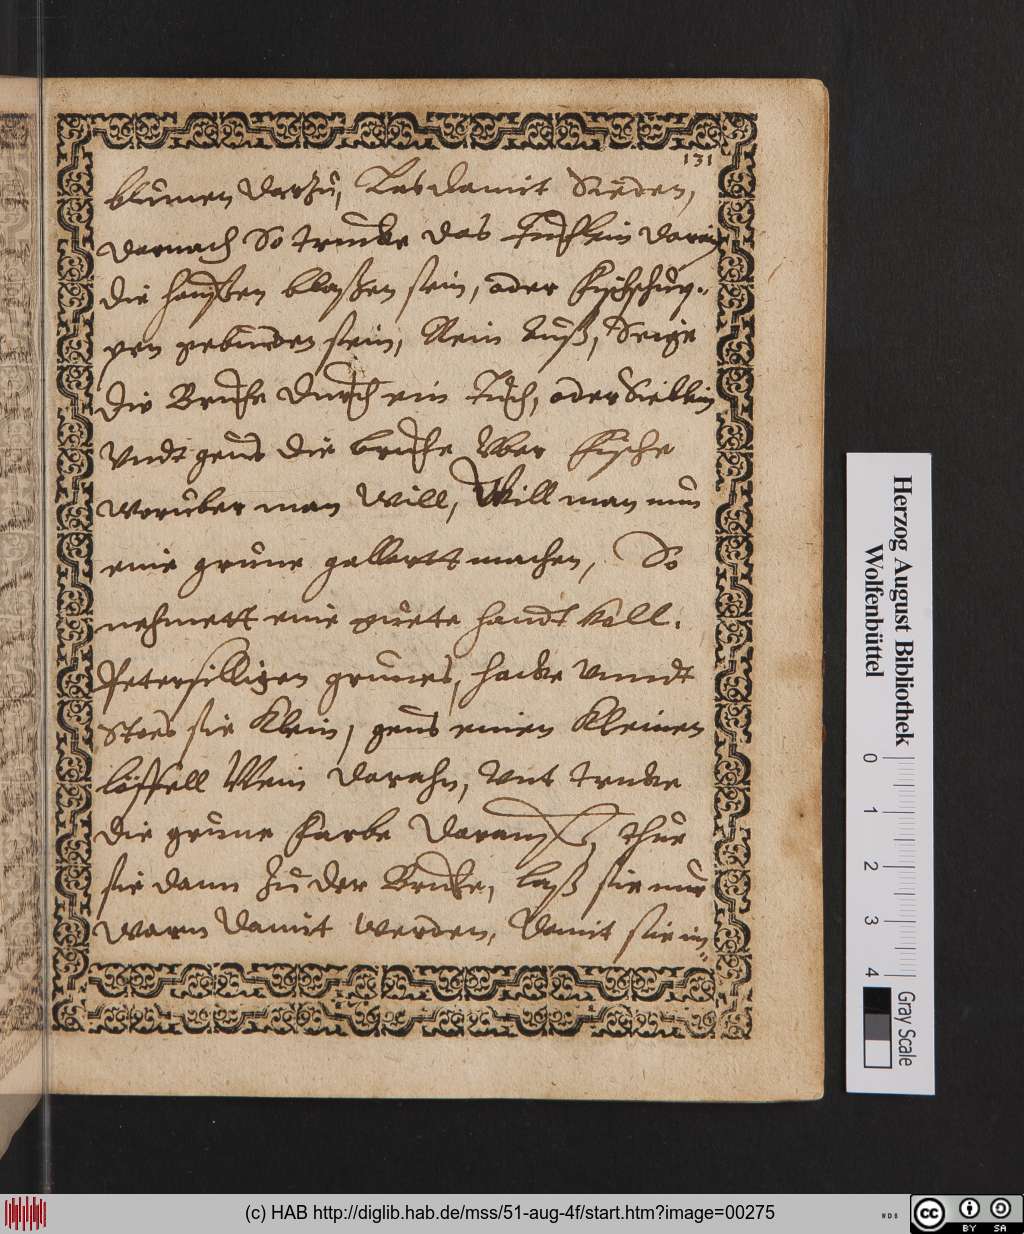 131
blumen darzu, Las damit Sieden,
darnach So trucke das Tuchlein darin
die haußen blaßen sein, oder Fischschup-
pen gebunden sein, Rein auß, Seige
die Bruhe durch ein Tuch, oder Sieblin
Vndt geus die bruhe Vber Fische
woruber man will, Will man nun
eine grune gallertt machen, So
nehmett eine guete handt voll
Petersilligen grunes, hacke Vnndt
Stoes sie Klein, geus einen Kleinen
löffell Wein darahn, Vnt trucke
die grune Farbe darauß, thue
sie dann zu der Bruhe, laß sie nur
warm damit werden, damit sie im-
Herzog August Bibliothek
Wolfenbüttel
0 1 2 3 4
Gray Scale
(c) HAB http://diglib.hab.de/mss/51-aug-4f/start.htm?image=00275
WDB
cc BY SA